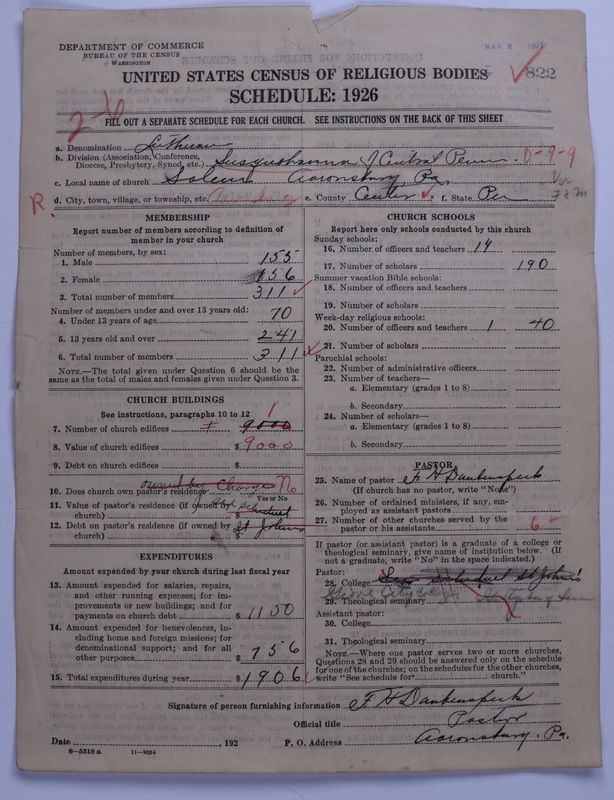 DEPARTMENT OF COMMERCE
BUREAU OF THE CENSUS
WASHINGTON
MAR 2
UNITED STATES CENSUS OF RELIGIOUS BODIES
822
SCHEDULE: 1926
2-6
FILL OUT A SEPARATE SCHEDULE FOR EACH CHURCH. SEE INSTRUCTIONS ON THE BACK OF THIS SHEET
a. Denomination Lutheran
b. Division (Association, Conference, Diocese, Presbytery, Synod, etc.) Susquehanna of Central Penn. 0-9-9
c. Local name of church Salem Aaronsburg Pa.
R. d. City, town, village, or township, etc. Aaronsburg e. County Center f. State Pen
MEMBERSHIP
Report number of members according to definition of
member in your church
Number of members, by sex:
1. Male 155
2. Female 156
3. Total number of members 311
Number of members under and over 13 years old:
4. Under 13 years of age 70
5. 13 years old and over 241
6. Total number of members 311
NOTE.—The total given under Question 6 should be
same as the total of males and females given under Question 3.
CHURCH BUILDINGS
See instructions, paragraphs 10 to 12
7. Number of church edifices 1 9000
8. Value of church edifices $ 9000
9. Debt on church edifices $
owned by Charge
10. Does church own pastor's residence No
Yes or No
11. Value of pastor's residence (if owned by church) $
12. Debt on pastor's residence (if owned by church) $ St Johns
EXPENDITURES
Amount expended by your church during last fiscal year
13. Amount expended for salaries, repairs,
and other running expenses; for im-
provements or new buildings; and for
payments on church debt $ 1150
14. Amount expended for benevolences, in-
cluding home and foreign missions; for
denominational support; and for all
other purposes $ 756
15. Total expenditures during year $ 1906
CHURCH SCHOOLS
Report here only schools conducted by this church
Sunday schools:
16. Number of officers and teachers 14
17. Number of scholars 190
Summer vacation Bible schools:
18. Number of officers and teachers
19. Number of scholars
Week-day religious schools:
20. Number of officers and teachers 1 40
21. Number of scholars
Parochial schools:
22. Number of administrative officers
23. Number of teachers—
a. Elementary (grades 1 to 8)
b. Secondary
24. Number of scholars—
a. Elementary (grades 1 to 8)
b. Secondary
PASTOR
25. Name of pastor F H Daubenspeck
(If church has no pastor, write "None")
26. Number of ordained ministers, if any, em-
ployed as assistant pastors
27. Number of other churches served by the
pastor or his assistants 6
If pastor (or assistant pastor) is a graduate of a college or
theological seminary, give name of institution below. (If
not a graduate, write "No" in the space indicated.)
Pastor:
28. College See schedule St John's
29. Theological seminary
Assistant pastor:
30. College
31. Theological seminary
NOTE.—Where one pastor serves two or more churches,
Questions 28 and 29 should be answered only on the schedule
for one of the churches; on the schedules for the other churches,
write "See schedule for church."
Signature of person furnishing information F H Daubenspeck
Official title Pastor
Date , 192 P. O. Address Aaronsburg, Pa.
8-5518 a 11-9264